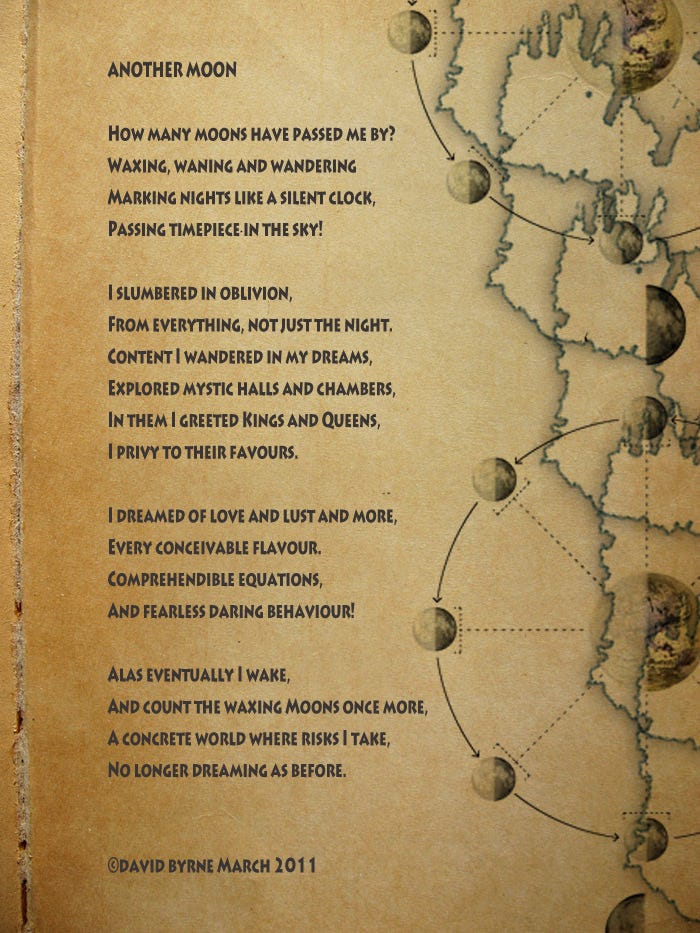 ANOTHER MOON
HOW MANY MOONS HAVE PASSED ME BY?
WAXING, WANING AND WANDERING
MARKING NIGHTS LIKE A SILENT CLOCK,
PASSING TIMEPIECE IN THE SKY!
I SLUMBERED IN OBLIVION,
FROM EVERYTHING, NOT JUST THE NIGHT.
CONTENT I WANDERED IN MY DREAMS,
EXPLORED MYSTIC HALLS AND CHAMBERS,
IN THEM I GREETED KINGS AND QUEENS,
I PRIVY TO THEIR FAVOURS.
I DREAMED OF LOVE AND LUST AND MORE,
EVERY CONCEIVABLE FLAVOUR.
COMPREHENDIBLE EQUATIONS,
AND FEARLESS DARING BEHAVIOUR!
ALAS EVENTUALLY I WAKE,
AND COUNT THE WAXING MOONS ONCE MORE,
A CONCRETE WORLD WHERE RISKS I TAKE,
NO LONGER DREAMING AS BEFORE.
©DAVID BYRNE MARCH 2011